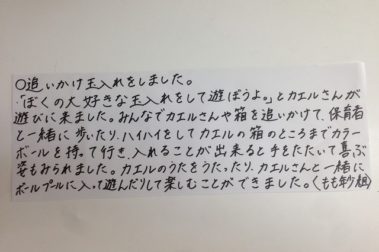 ○追いかけ玉入れをしました。
「ぼくの大好きな玉入れをして遊ぼうよ。」とカエルさんが
遊びに来ました。みんなでカエルさんや箱を追いかけて、保育者
と一緒に歩いたり、ハイハイをしてカエルの箱のところまでカラー
ボールを持って行き、入れることが出来ると手をたたいて喜ぶ
姿もみられました。カエルのうたをうたったり、カエルさんと一緒に
ボールプールに入って遊んだりして楽しむことができました。(もも組)